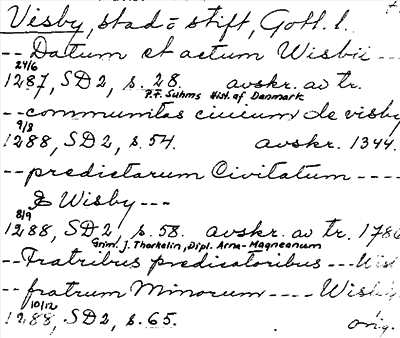 Visby, stad = stift, Gotl. l.
-- Datum et actum Wisbii ---
24/6
1287, SD2, s. 28. avskr. av tr.
P.F. Suhms Hist. af Danmark
-- communitas ciuium de visby
9/8
1288, SD2, s. 54. avskr. 1344.
-- predictarum Civitatum ----
& Wisby ---
8/9
1288, SD2, s. 58. avskr. av tr. 1786
Grim. J. Thorkelin, Dipl. Arna-Magneanum
-- Fratribus predicatoribus --- Wisb
-- fratrum Minorum ---- Wisby
10/12
1288, SD2, s. 65. orig.